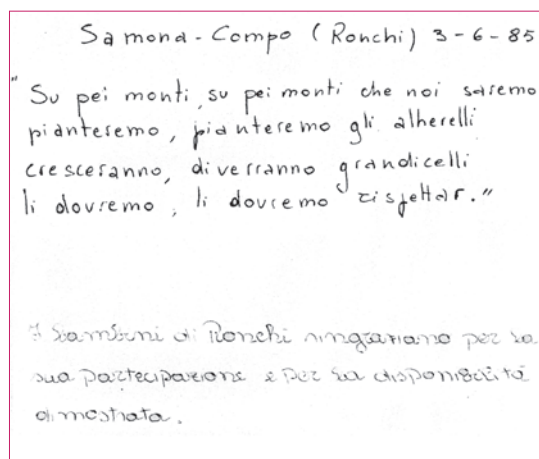 Samona - Compo (Ronchi) 3-6-85
"Su pei monti, su pei monti che noi saremo
pianteremo, pianteremo gli alberelli
cresceranno, diverranno grandicelli
li dovremo, li dovremo rispettar."
I bambini di Ronchi ringraziano per la
sua partecipazione e per la disponibilità
dimostrata.